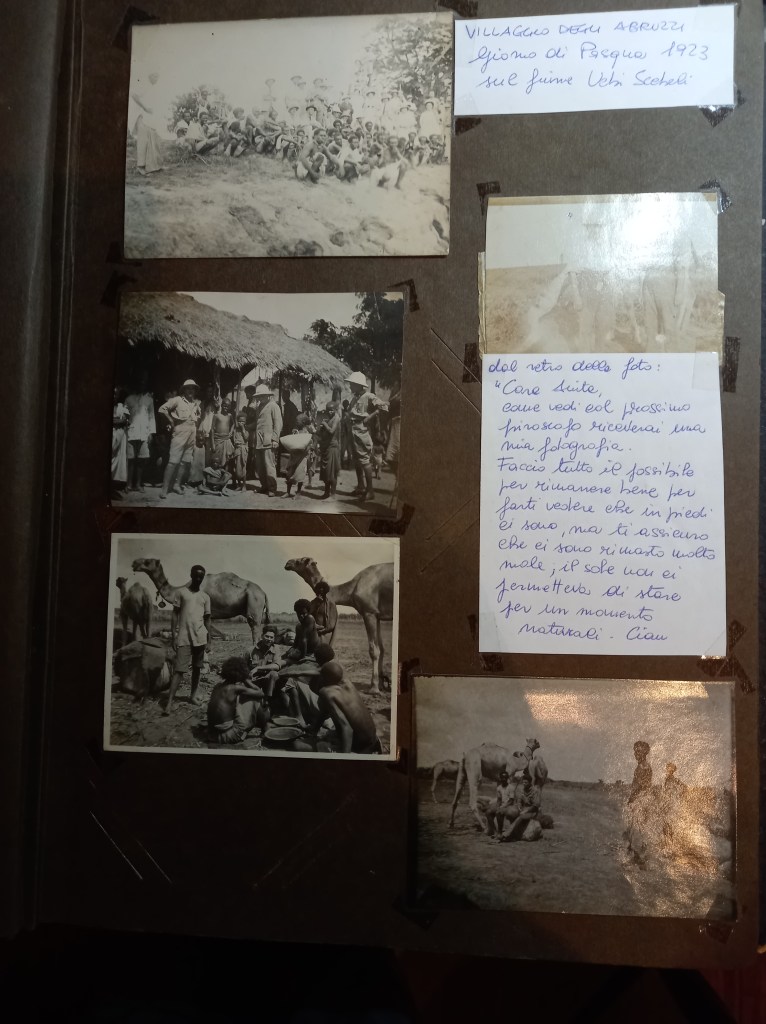 VILLAGGIO DEGLI ABRUZZI
Giorno di Pasqua 1923
sul fiume Uebi Scebeli
dal retro della foto:
"Cara
come vedi col prossimo
piroscafo riceverai una
mia fotografia.
Faccio tutto il possibile
per rimanere bene per
farti vedere che in piedi
ci sono, ma ti assicuro
che ci sono rimasto molto
male, il sole non ci
permetteva di stare
per un momento
naturali. Ciau